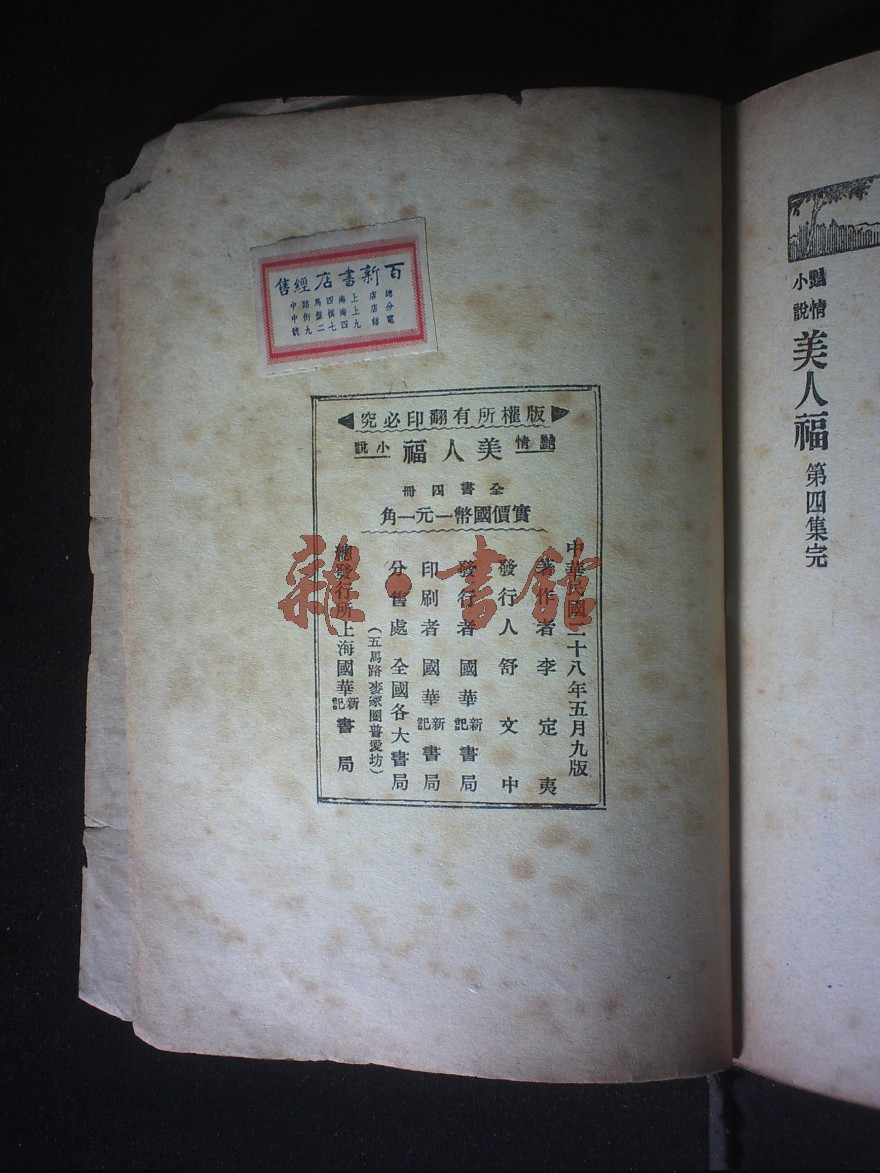 百新書店經售
總店 上海四馬路中
分店 上海棋盤街中
電話 九四七二九號
版權所有翻印必究
艷情小說 美人福
全書四冊
實價國幣一元一角
中華民國二十八年五月九版
著作者 李定夷
發行人 舒文中
發行者 國華新記書局
印刷者 國華新記書局
分售處 全國各大書局
(五馬路麥家圈普愛坊)
總發行所 上海國華新記書局
雜·書館
艷情小說 美人福 第四集完